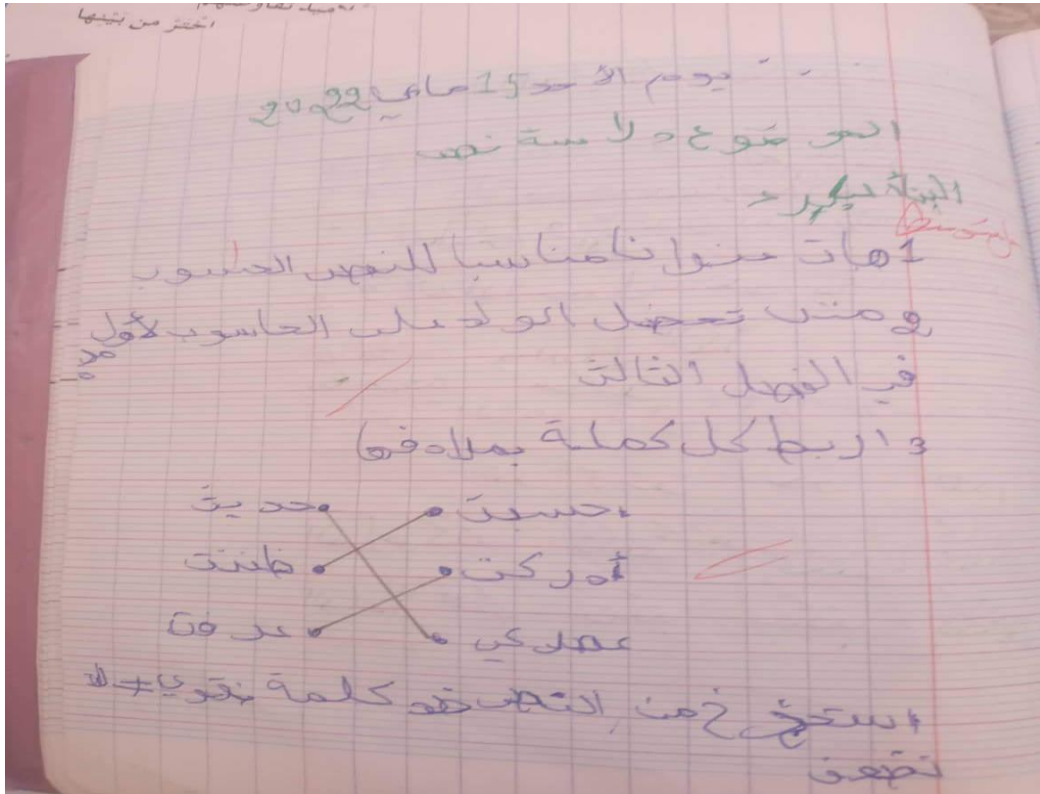 اختر من بينها
يوم الأحد 15 ماي 2022
الموضوع دلاسة نص
البناء
1 هات عنوانا مناسبا للنص الحاسوب
2 متى تحصل الولد على الحاسوب لأول مرة
في الفصل الثالث
3 اربط كل كملة بمرادفها
حسبت حديث
أدركت ظننت
عصري عرفت
4 استخرج من النص ضد كلمة نقوي ≠
نضعف